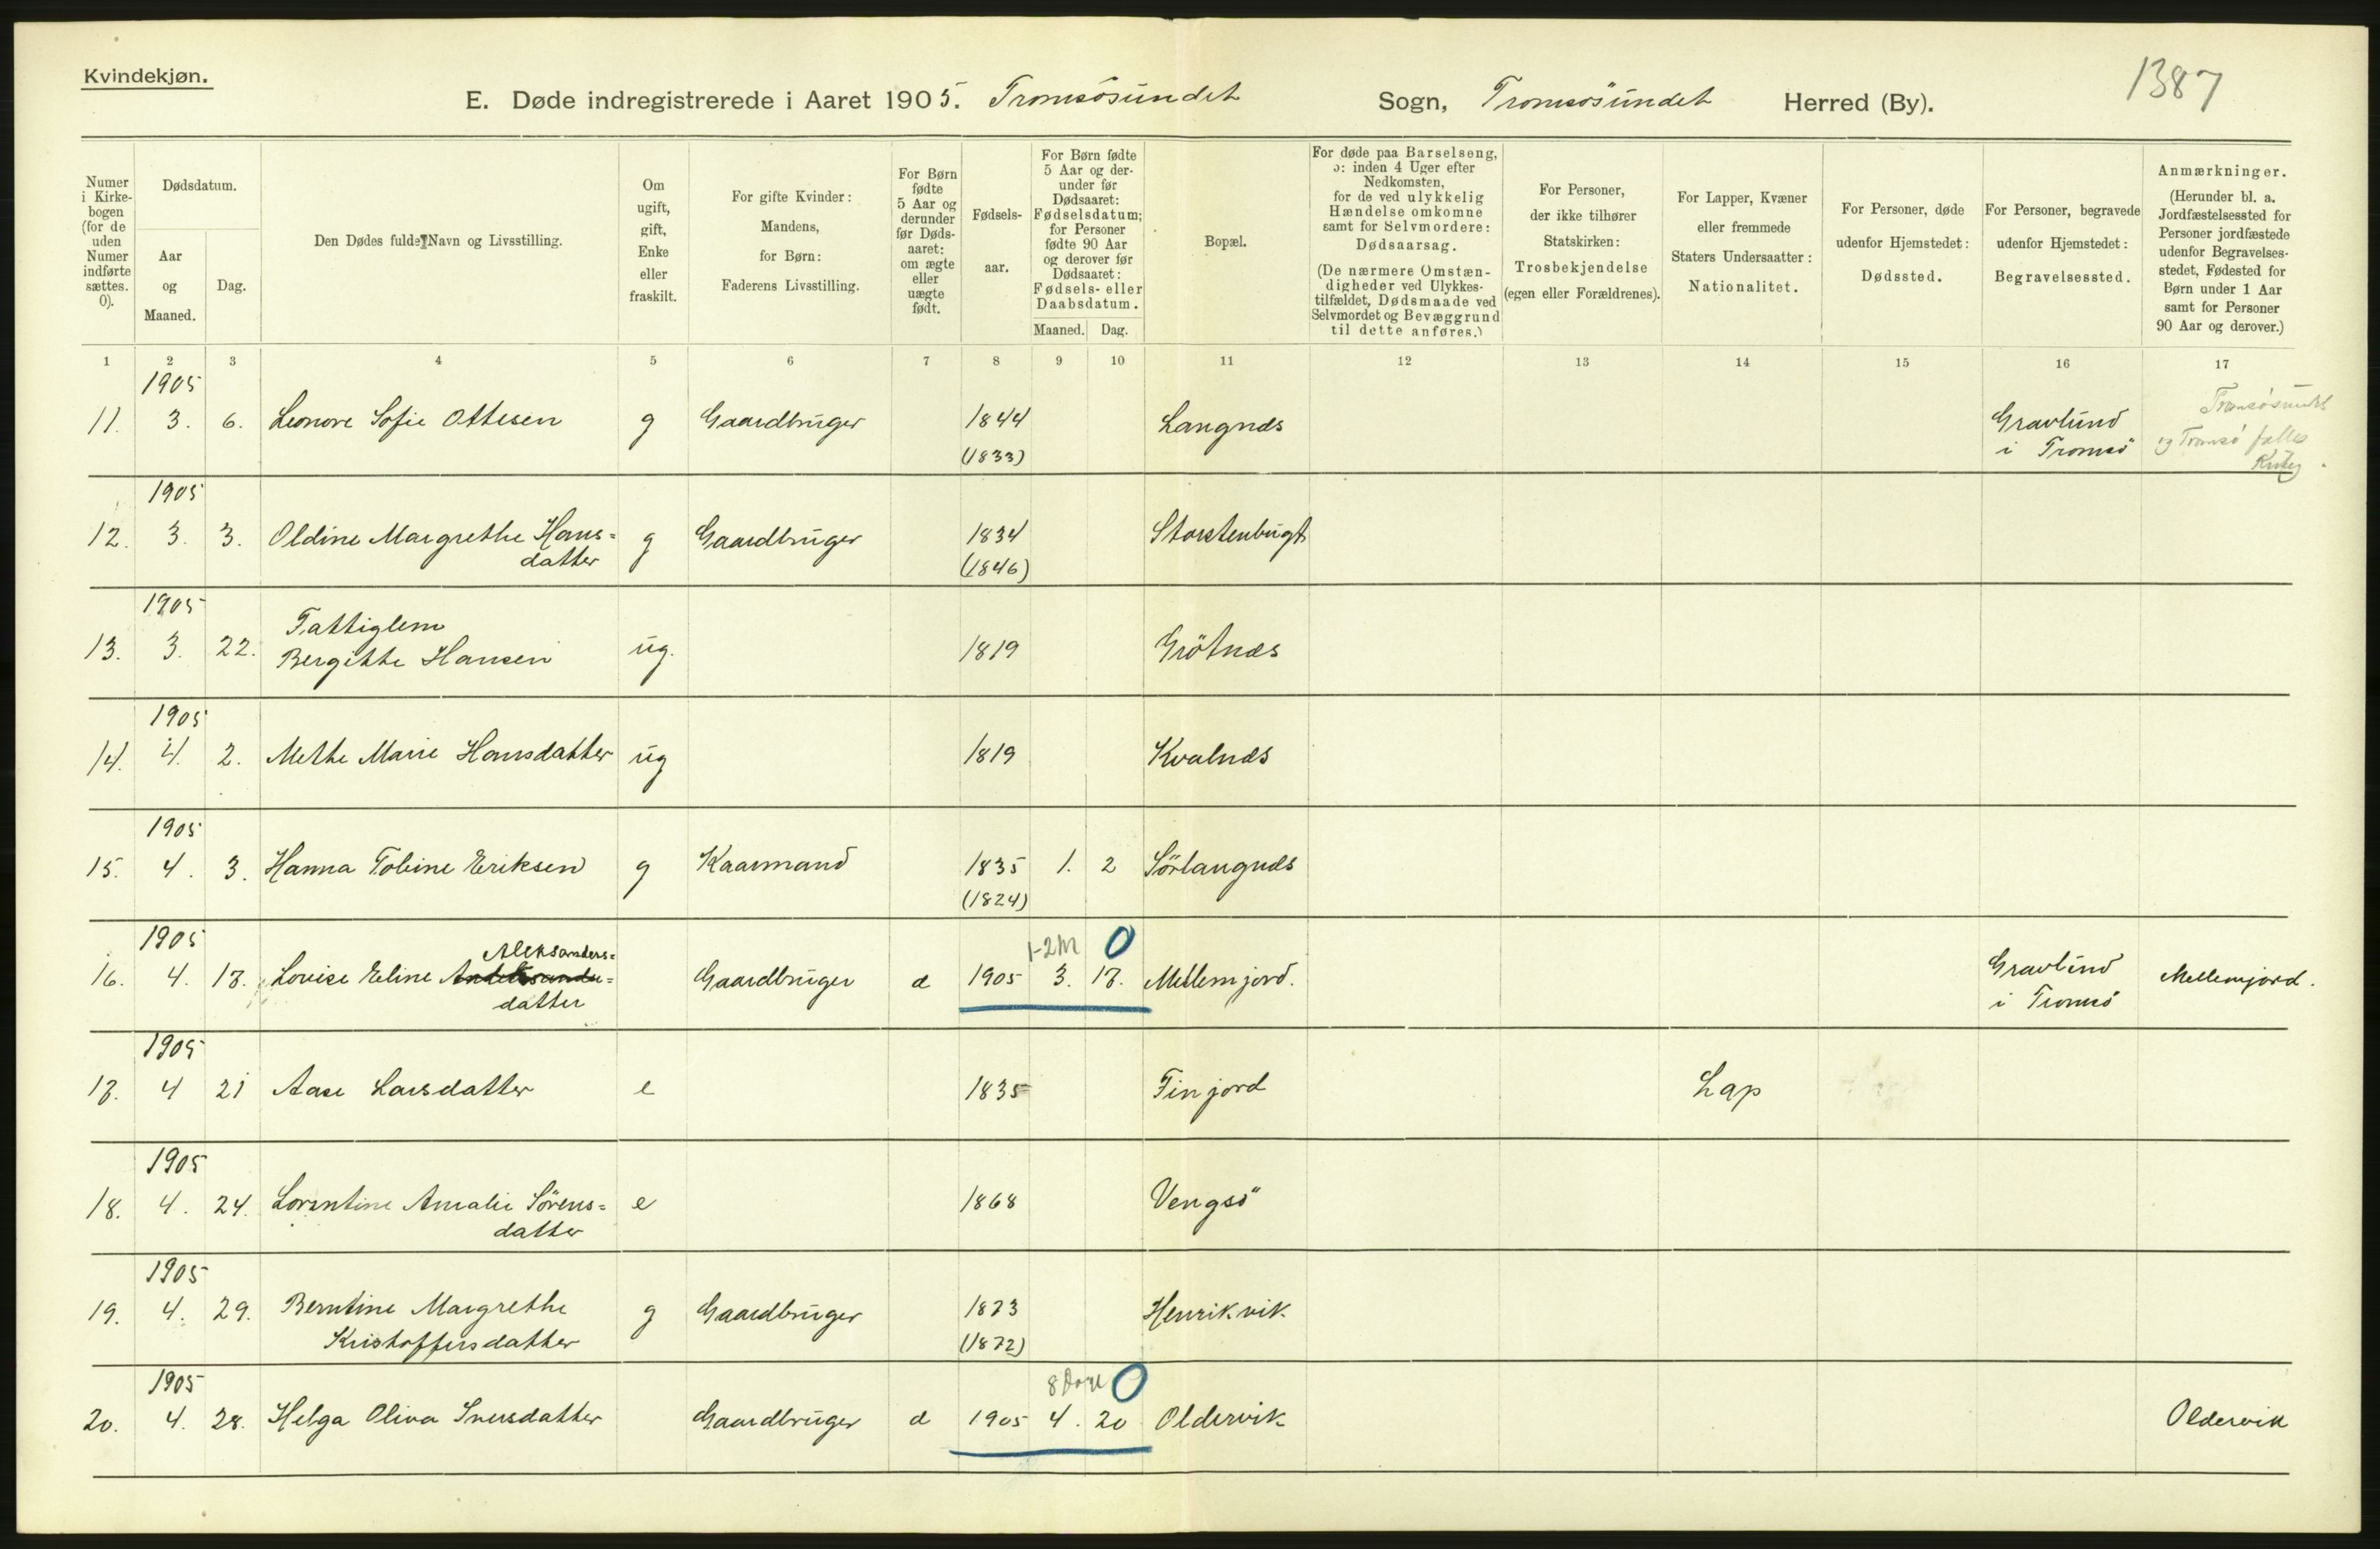 Kvindekjøn.
1387
E. Døde indregistrerede i Aaret 1905. Tromsösundet Sogn, Tromsösundet Herred (By).
Numer i Kirke-bogen (for de uden Numer indførte sættes. 0).
Dødsdatum.
Aar og Maaned.
Dag.
Den Dødes fulde Navn og Livsstilling.
Om ugift, gift, Enke eller fraskilt.
For gifte Kvinder: Mandens, for Børn: Faderens Livsstilling.
For Børn fødte 5 Aar og derunder før Døds-aaret: om ægte eller uægte født.
Fødsels-aar.
For Børn fødte 5 Aar og der-under før Dødsaaret: Fødselsdatum; for Personer fødte 90 Aar og derover før Dødsaaret: Fødsels- eller Daabsdatum.
Maaned. Dag.
Bopæl.
For døde paa Barselseng, ɔ: inden 4 Uger efter Nedkomsten, for de ved ulykkelig Hændelse omkomne samt for Selvmordere: Dødsaarsag.
(De nærmere Omstæn-digheder ved Ulykkes-tilfældet, Dødsmaade ved Selvmordet og Bevæggrund til dette anføres.)
For Personer, der ikke tilhører Statskirken: Trosbekjendelse (egen eller Forældrenes).
For Lapper, Kvæner eller fremmede Staters Undersaatter: Nationalitet.
For Personer, døde udenfor Hjemstedet: Dødssted.
For Personer, begravede udenfor Hjemstedet: Begravelsessted.
Anmærkninger.
(Herunder bl. a. Jordfæstelsessted for Personer jordfæstede udenfor Begravelses-stedet, Fødested for Børn under 1 Aar samt for Personer 90 Aar og derover.)
1 2 3 4 5 6 7 8 9 10 11 12 13 14 15 16 17
1905
11. 3. 6. Leonore Sofie Ottesen g Gaardbruger 1844 Langnæs Gravlund
(1833) i Tromsö
og Tromsö fælles
1905
12. 3. 3. Oldine Margrethe Hans= g Gaardbruger 1834 Storstenbugt
datter (1846)
1905
Fattiglem
13. 3. 22. Bergitte Hansen ug. 1819 Grötnæs
1905
14. 4. 2. Methe Marie Hansdatter ug 1819 Kvalnæs
1905
15. 4. 3. Hanna Tobine Eriksen g Kaarmand 1835 1. 2 Sörlangnæs
(1824)
1905 Aleksanders= 1-2 M 0
16. 4. 17. Lovise Eline Gaardbruger æ 1905 3. 17. Mellemjord. Gravlund Mellemjord.
datter i Tromsö
1905
17. 4 21 Aase Larsdatter e 1835 Finjord Lap
1905
18. 4. 24. Lorentine Amalie Sörens= e 1868 Vengsö
datter
1905
19. 4. 29. Berntine Margrethe g Gaardbruger 1873 Henrikvik
Kristoffersdatter (1872)
1905 8 Dage 0
20. 4. 28. Helga Oliva Iversdatter Gaardbruger æ 1905 4. 20 Oldervik Oldervik